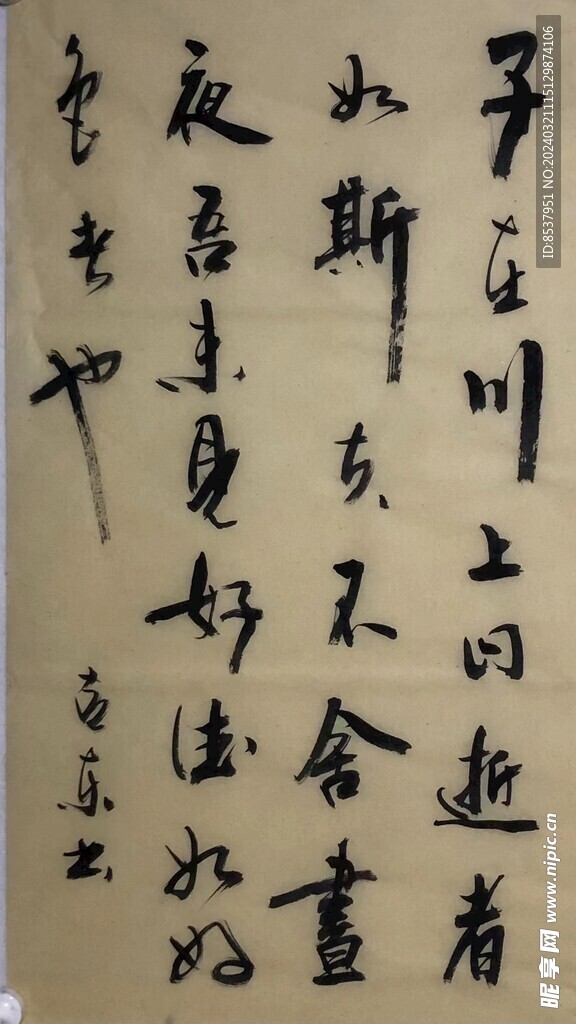 子在川上曰逝者
如斯夫不舍晝
夜吾未見好德如好
色者也
吉东书
ID:8537951 NO:20240321115129874106
昵享网 www.nipic.cn